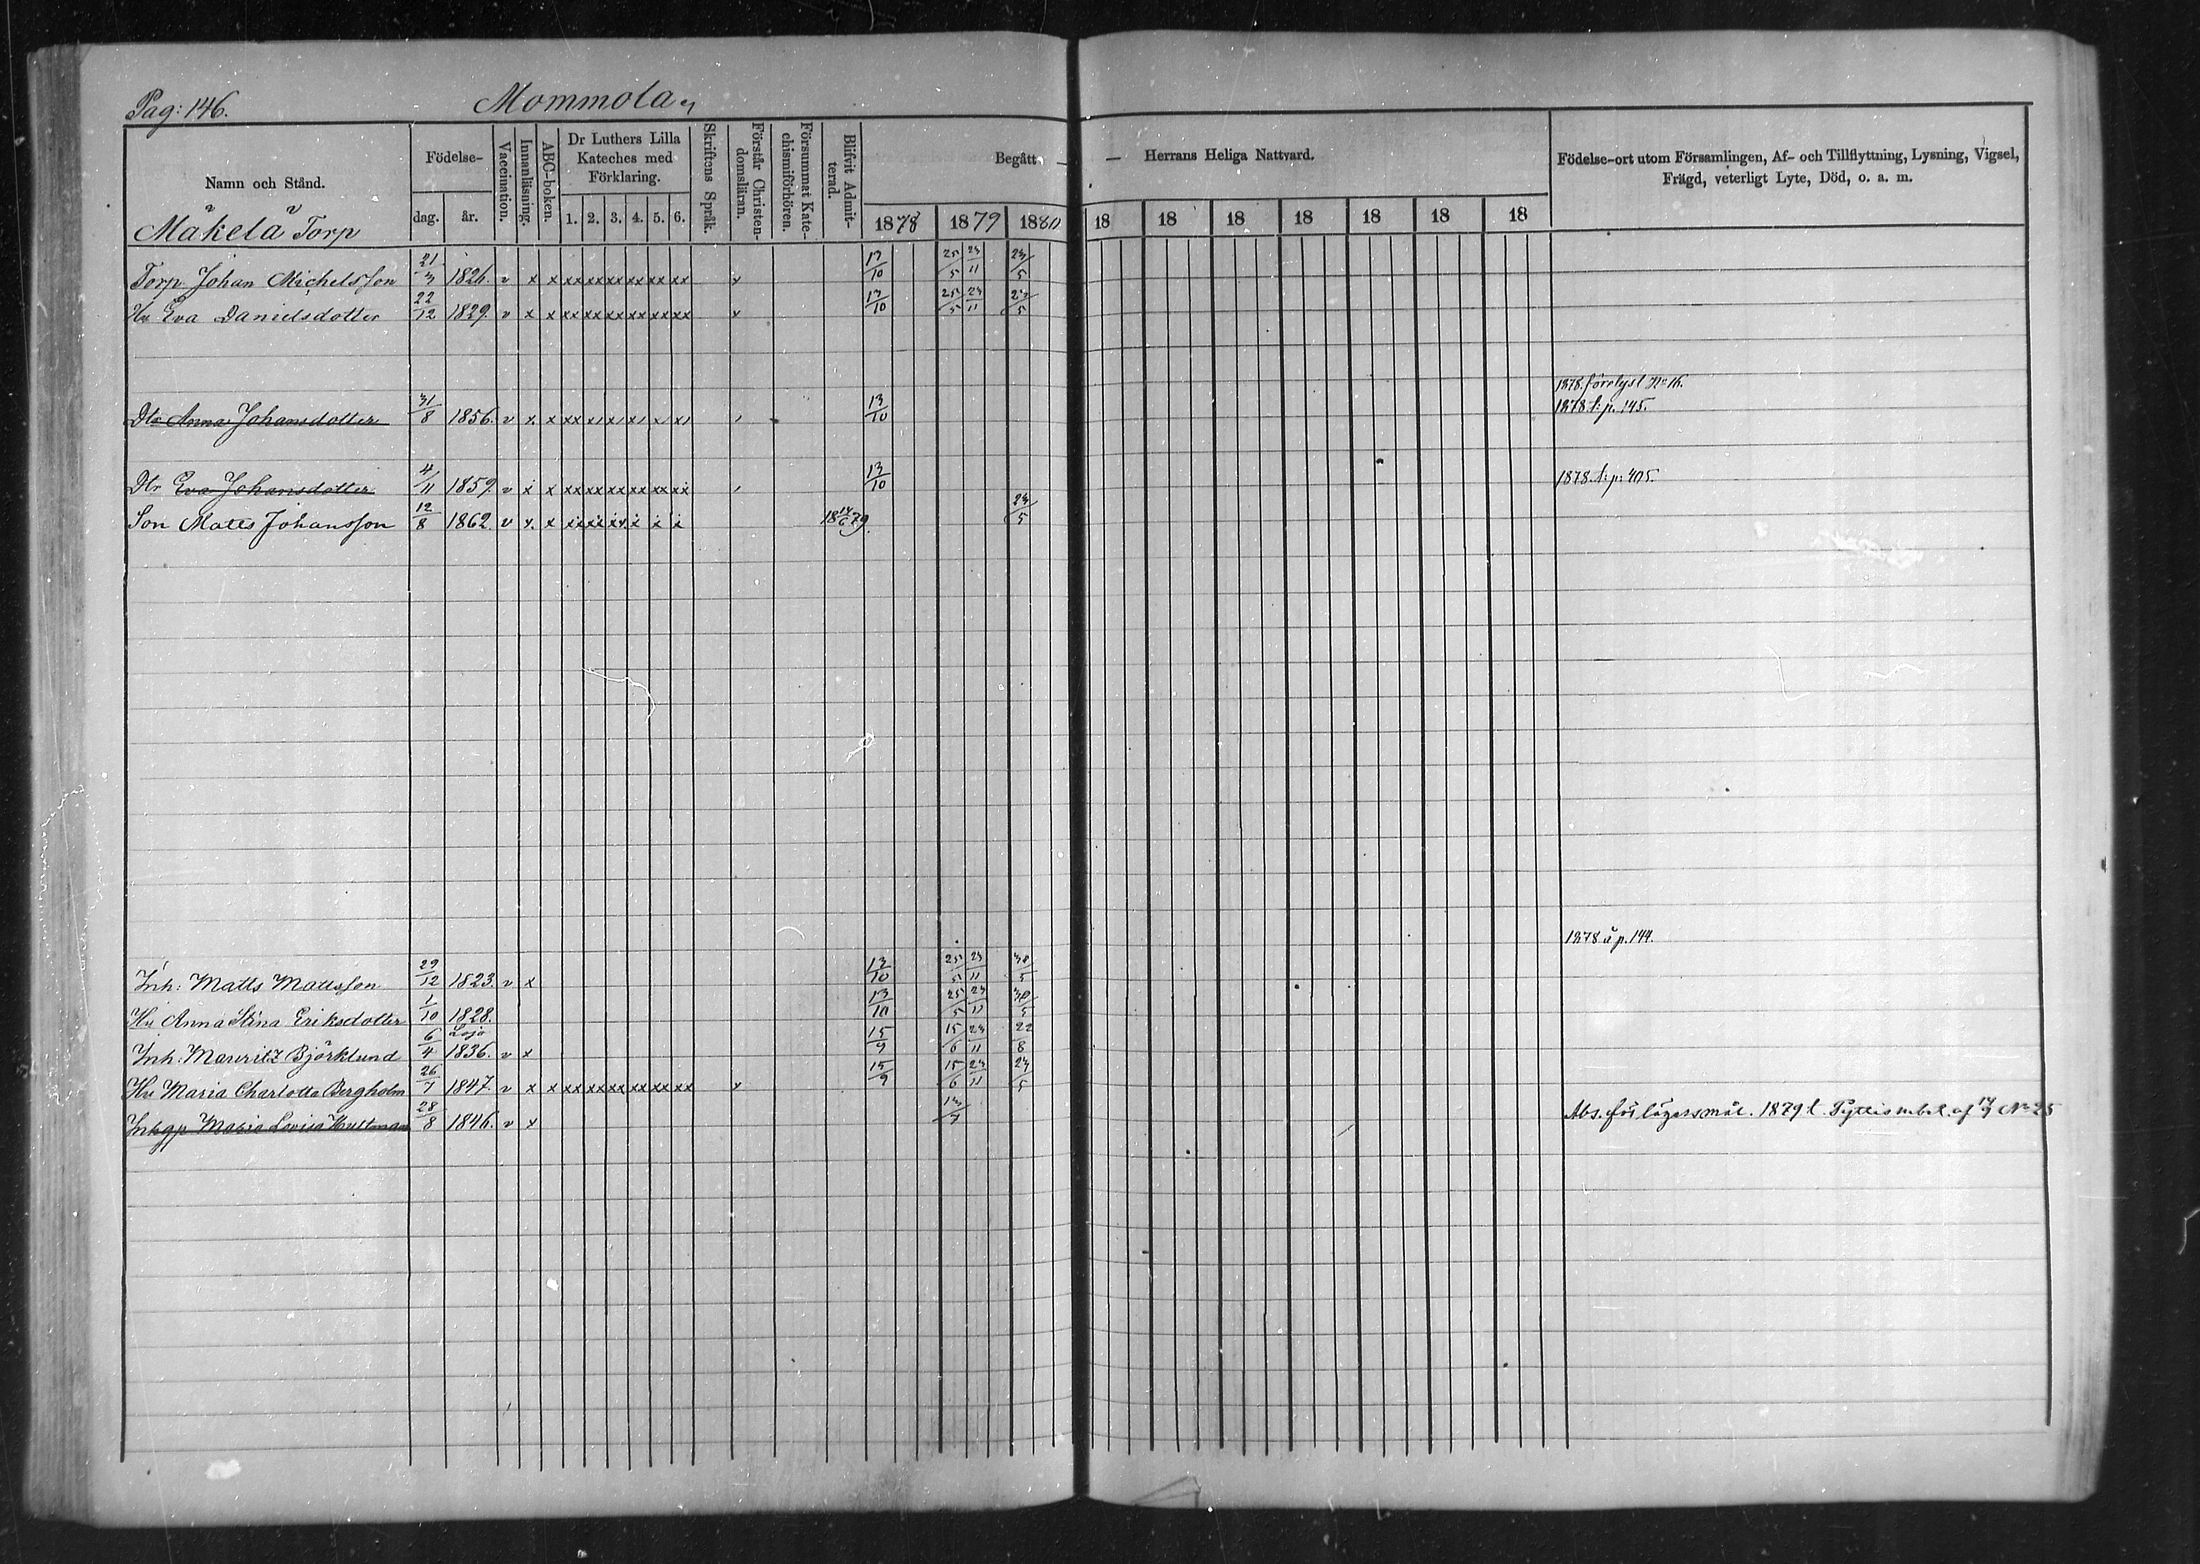 Pag: 146. Mommola
Namn och Stånd. Födelse- dag. år. Vaccination. Innanläsning. ABC-boken. Dr Luthers Lilla Kateches med Förklaring. 1. 2. 3. 4. 5. 6. Skriftens Språk. Förstår Christendomsläran. Försummat Katechismiförhören. Blifvit Admitterad. Begått Herrans Heliga Nattvard. Födelse-ort utom Församlingen, Af- och Tillflyttning, Lysning, Vigsel, Frägd, veterligt Lyte, Död, o. a. m.
1878 1879 1880 18 18 18 18 18 18 18
Mäkelä Torp
Torp. Johan Michelsson 21/3 1826. v x x xx xx xx xx xx xx x 13/10 25/5 23/11 23/5
Hu Eva Danielsdotter 22/12 1829. v x x xx xx xx xx xx xx x 13/10 25/5 23/11 23/5
1878. förelyst No 16.
Dtr Anna Johansdotter 31/8 1856. v x x 13/10 1878 t: p. 145.
Dtr Eva Johansdotter 4/11 1859. v x x xx xx xx xx xx xx 13/10 1878. t: p: 405.
Son Matts Johansson 12/8 1862 v x x 18 14/6 79. 23/5
1878 å p. 144.
Inh: Matts Mattsson 29/12 1823. v x 13/10 25/5 23/11 30/5
Hu Anna Stina Eriksdotter 1/10 1828. 13/10 25/5 23/11 30/5
Lojo
Inh: Mauritz Björklund 6/4 1836. v x 15/9 15/6 23/11 22/8
Hu Maria Charlotta Bergholm 26/7 1847. v x x xx xx xx xx xx xx x 15/9 15/6 23/11 23/5
Inhgp Maria Lovisa Hultman 28/8 1846. v x 13/7 Abs. för lägersmål. 1879 t. Pyttis m. bet. af 14/9 No 25